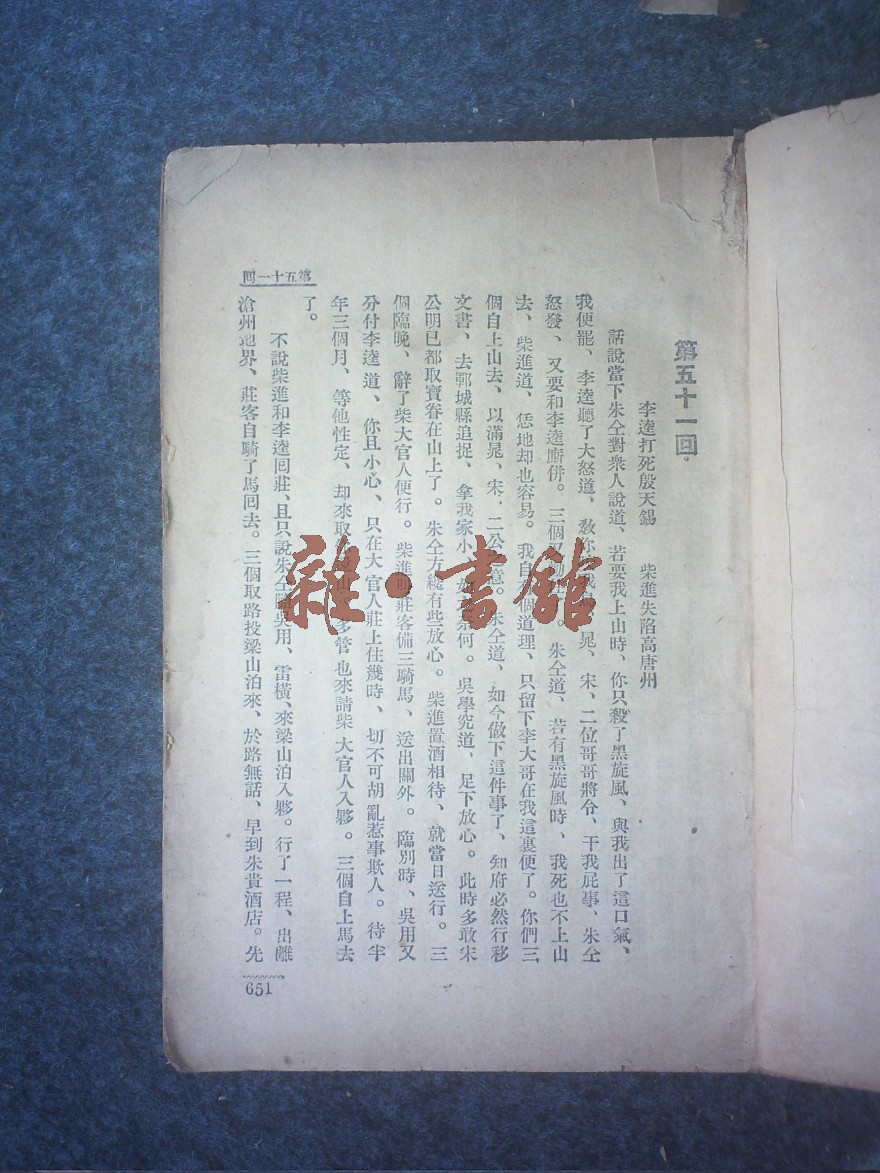 第五十一回
李逵打死殷天錫　柴進失陷高唐州
話說當下朱仝對衆人說道、若要我上山時、你只殺了黑旋風、與我出了這口氣、
我便罷、李逵聽了大怒道、敎你 晁、宋、二位哥哥將令、干我屁事、朱仝
怒發、又要和李逵廝併。三個又 朱仝道、若有黑旋風時、我死也不上山
去、柴進道、恁地却也容易。我自 個道理、只留下李大哥在我這裏便了。你們三
個自上山去、以滿晁、宋、二公之意。朱仝道、如今做下這件事了、知府必然行移
文書、去鄆城縣追捉、拿我家小、 何。吳學究道、足下放心。此時多敢宋
公明已都取寶眷在山上了。朱仝方纔有些放心。柴進置酒相待、就當日送行。三
個臨晚、辭了柴大官人便行。柴進 莊客備三騎馬、送出關外。臨別時、吳用又
分付李逵道、你且小心、只在大官人莊上住幾時、切不可胡亂惹事欺人。待半
年三個月、等他性定、却來取 山 多管也來請柴大官人入夥。三個自上馬去
了。
不說柴進和李逵回莊、且只說朱仝 吳用、雷橫、來梁山泊入夥。行了一程、出離
滄州地界、莊客自騎了馬回去。三個取路投梁山泊來、於路無話、早到朱貴酒店。先
第五十一回
651
雜·書館